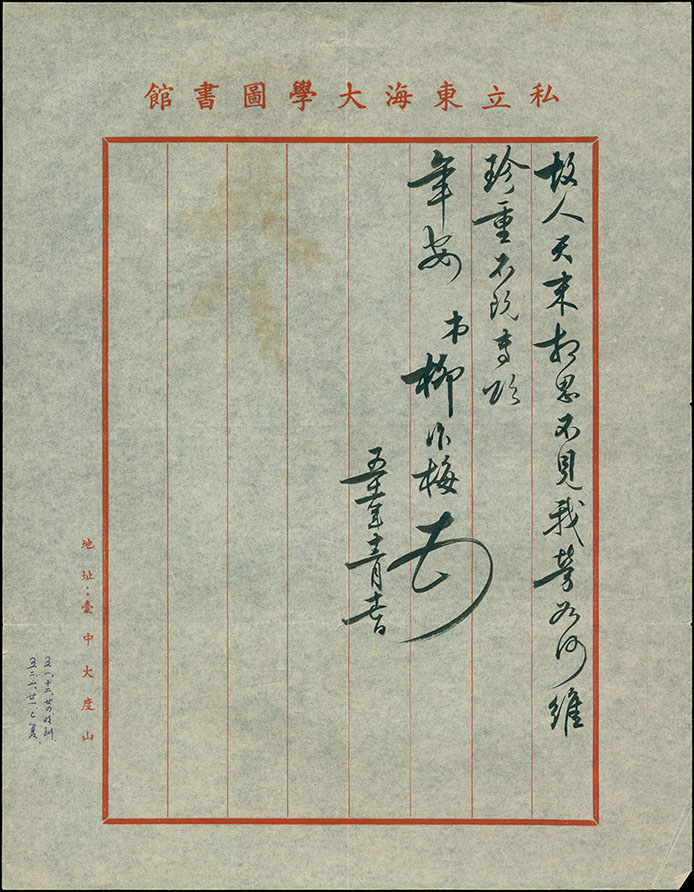 私立東海大學圖書館
故人天末相思不見我勞如何維
珍重不既專頌
年安 弟柳作梅
五十一年十二月
地址：臺中大度山
五一、十二、廿四收到
五二、一、廿一、已覆